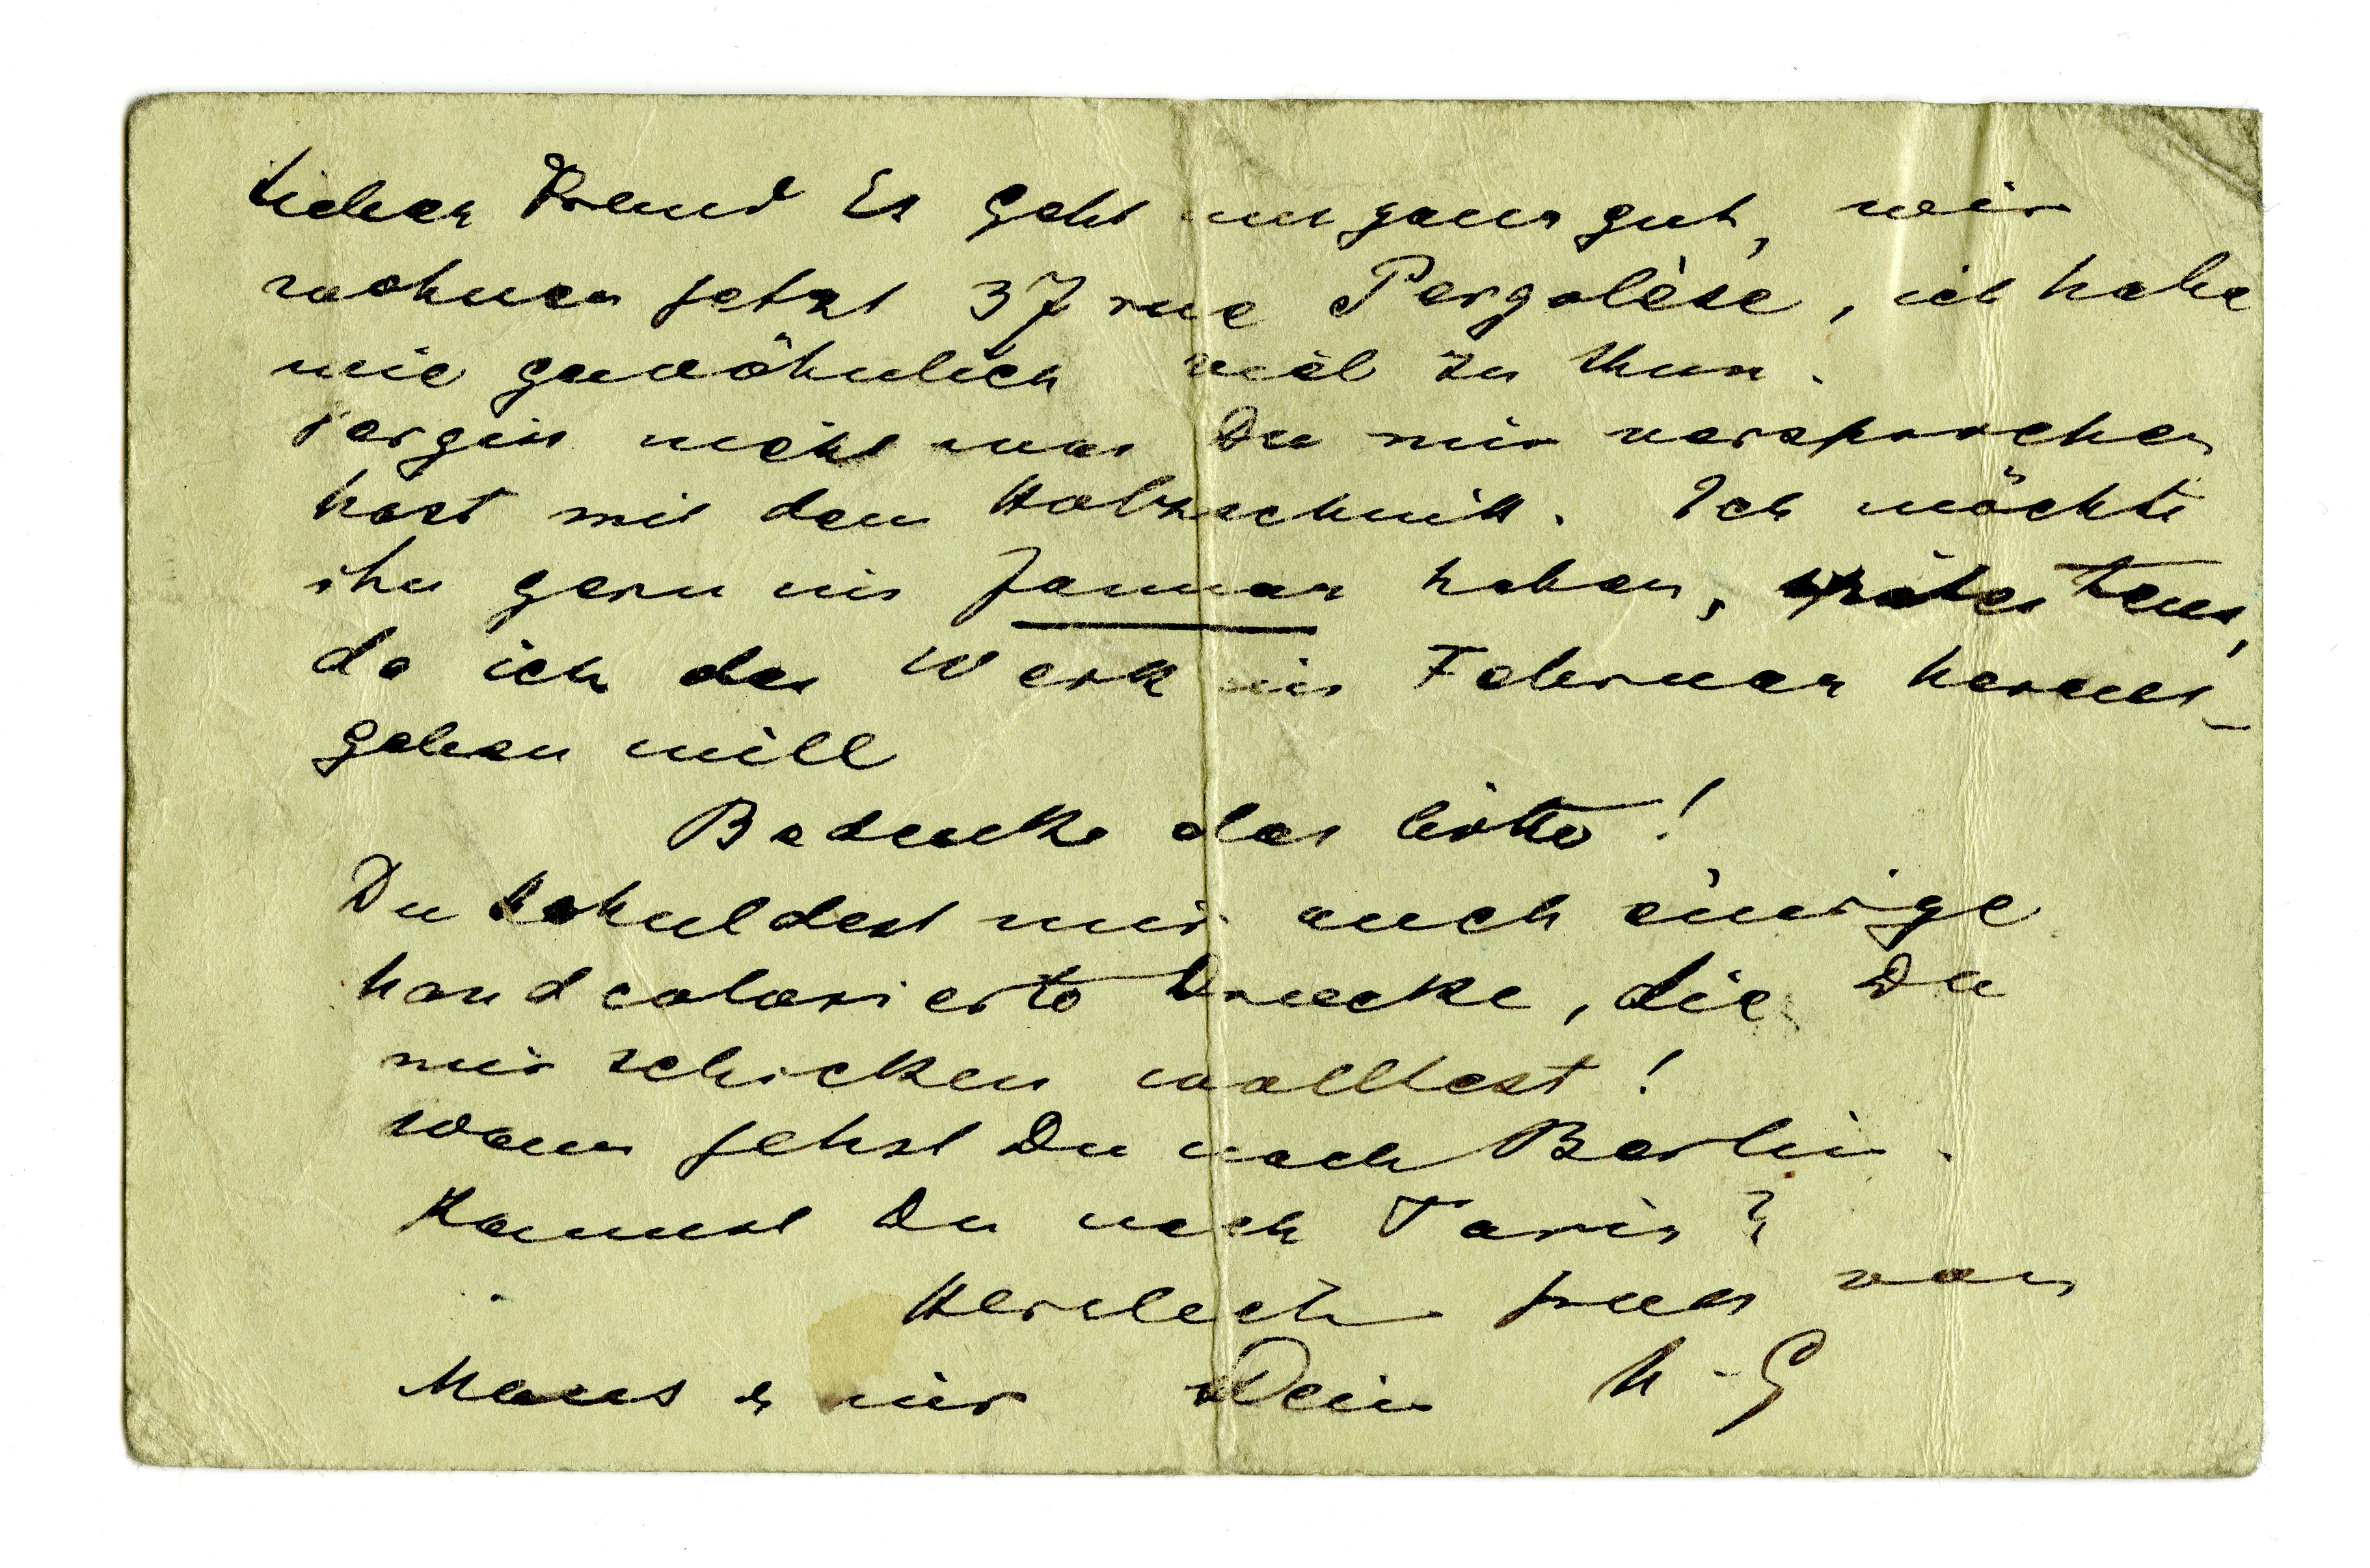 Lieber Freund Es geht uns ganz gut, wir
wohnen jetzt 37 rue Pergolèse, ich habe
wie gewöhnlich viel zu thun.
Vergiss nicht was Du mir versprochen
hast mit dem Holzschnitt. Ich möchte
ihn gern im Januar haben, spätestens,
da ich das Werk im Februar heraus-
geben will
Bedenke das bitte!
Du schuldest mir auch einige
handcolorierte Drucke, die Du
mir schicken wolltest!
Wann gehst Du nach Berlin.
Kommst Du nach Paris?
Herzlich von
Dein